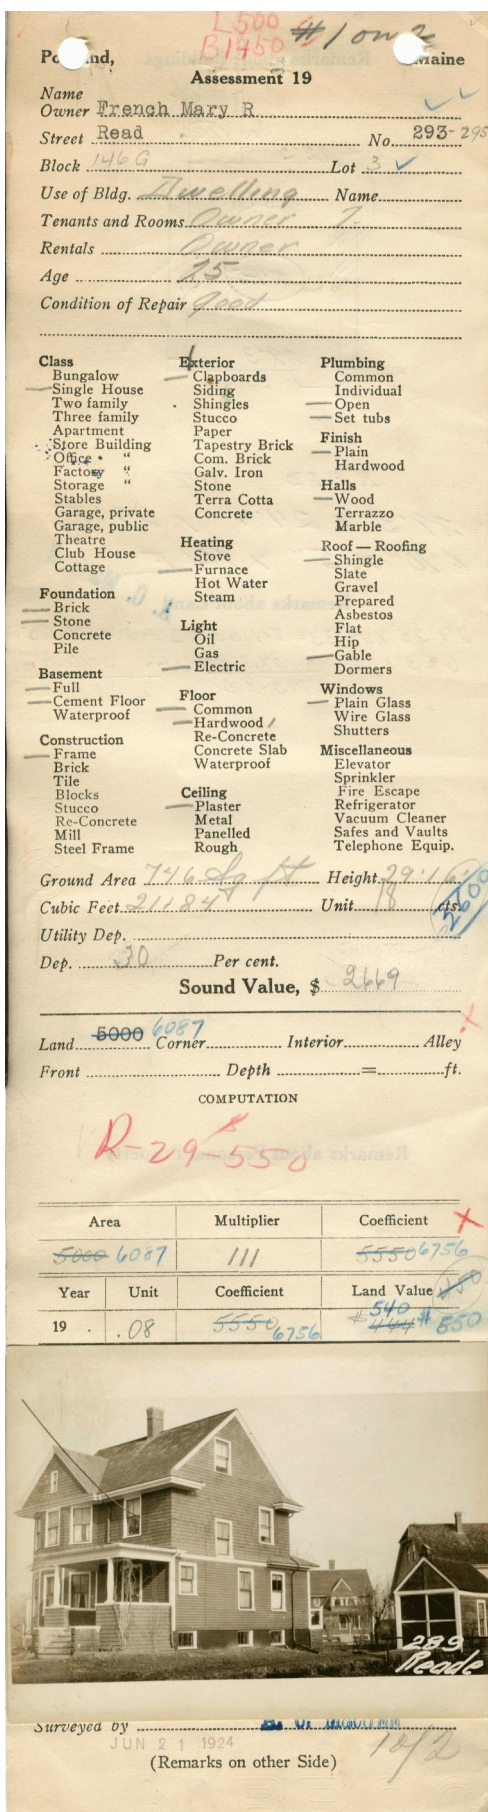 L500 #1 on 2
B1450
Maine
Assessment 19
Name
Owner French Mary R
Street Read No. 293-295
Block 146G Lot 3
Use of Bldg. Dwelling Name
Tenants and Rooms Owner 7
Rentals Owner
Age 25
Condition of Repair Good
Class
Bungalow
Single House
Two family
Three family
Apartment
Store Building
Office "
Factory "
Storage "
Stables
Garage, private
Garage, public
Theatre
Club House
Cottage
Foundation
Brick
Stone
Concrete
Pile
Basement
Full
Cement Floor
Waterproof
Construction
Frame
Brick
Tile
Blocks
Stucco
Re-Concrete
Mill
Steel Frame
Exterior
Clapboards
Siding
Shingles
Stucco
Paper
Tapestry Brick
Com. Brick
Galv. Iron
Stone
Terra Cotta
Concrete
Heating
Stove
Furnace
Hot Water
Steam
Light
Oil
Gas
Electric
Floor
Common
Hardwood
Re-Concrete
Concrete Slab
Waterproof
Ceiling
Plaster
Metal
Panelled
Rough
Plumbing
Common
Individual
Open
Set tubs
Finish
Plain
Hardwood
Halls
Wood
Terrazzo
Marble
Roof — Roofing
Shingle
Slate
Gravel
Prepared
Asbestos
Flat
Hip
Gable
Dormers
Windows
Plain Glass
Wire Glass
Shutters
Miscellaneous
Elevator
Sprinkler
Fire Escape
Refrigerator
Vacuum Cleaner
Safes and Vaults
Telephone Equip.
Ground Area 746 Sq ft Height 29.16
Cubic Feet 21184 Unit 18 cts.
2600
Utility Dep.
Dep. 30 Per cent.
Sound Value, $ 2669
Land 5000 6087 Corner Interior Alley
Front Depth = ft.
COMPUTATION
R-29 $550
Area Multiplier Coefficient
5000 6087 111 5550 6756
Year Unit Coefficient Land Value
19 .08 5550 6756 $444 540 #550
289
Reade
Surveyed by
JUN 21 1924
(Remarks on other Side)
10/2